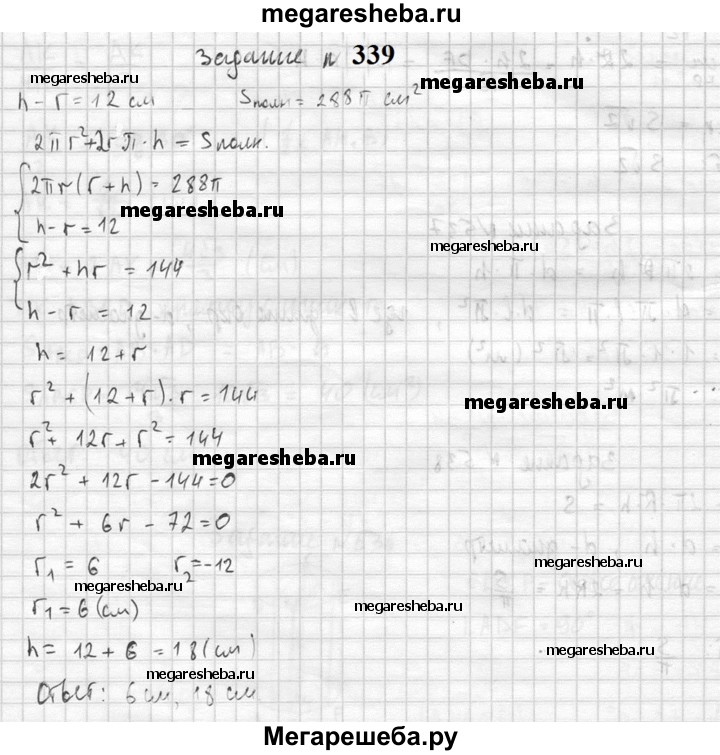 megaresheba.ru
Задание n 339
megaresheba.ru
megaresheba.ru
h - r = 12 см    Sполн = 288π см²
2πr² + 2rπ · h = Sполн.
{ 2πr(r + h) = 288π
megaresheba.ru
h - r = 12
megaresheba.ru
{ r² + hr = 144
h - r = 12
h = 12 + r
r² + (12 + r) · r = 144
megaresheba.ru
r² + 12r + r² = 144
megaresheba.ru
2r² + 12r - 144 = 0
r² + 6r - 72 = 0
r₁ = 6    r₂ = -12
megaresheba.ru
megaresheba.ru
r₁ = 6 (см)
megaresheba.ru
h = 12 + 6 = 18 (см)
megaresheba.ru
megaresheba.ru
Ответ: 6 см, 18 см
Мегарешеба.ру